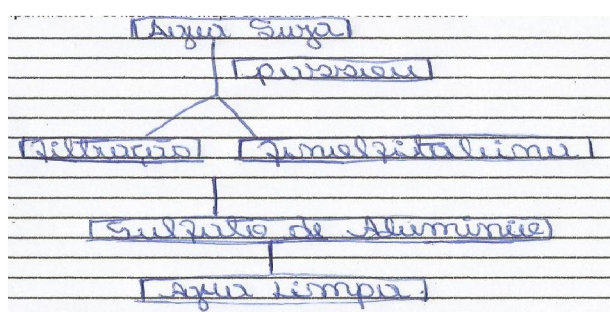 Agua Suza
passou
Filtração Finolfitaleina
Sulfato de Aluminio
Agua Limpa